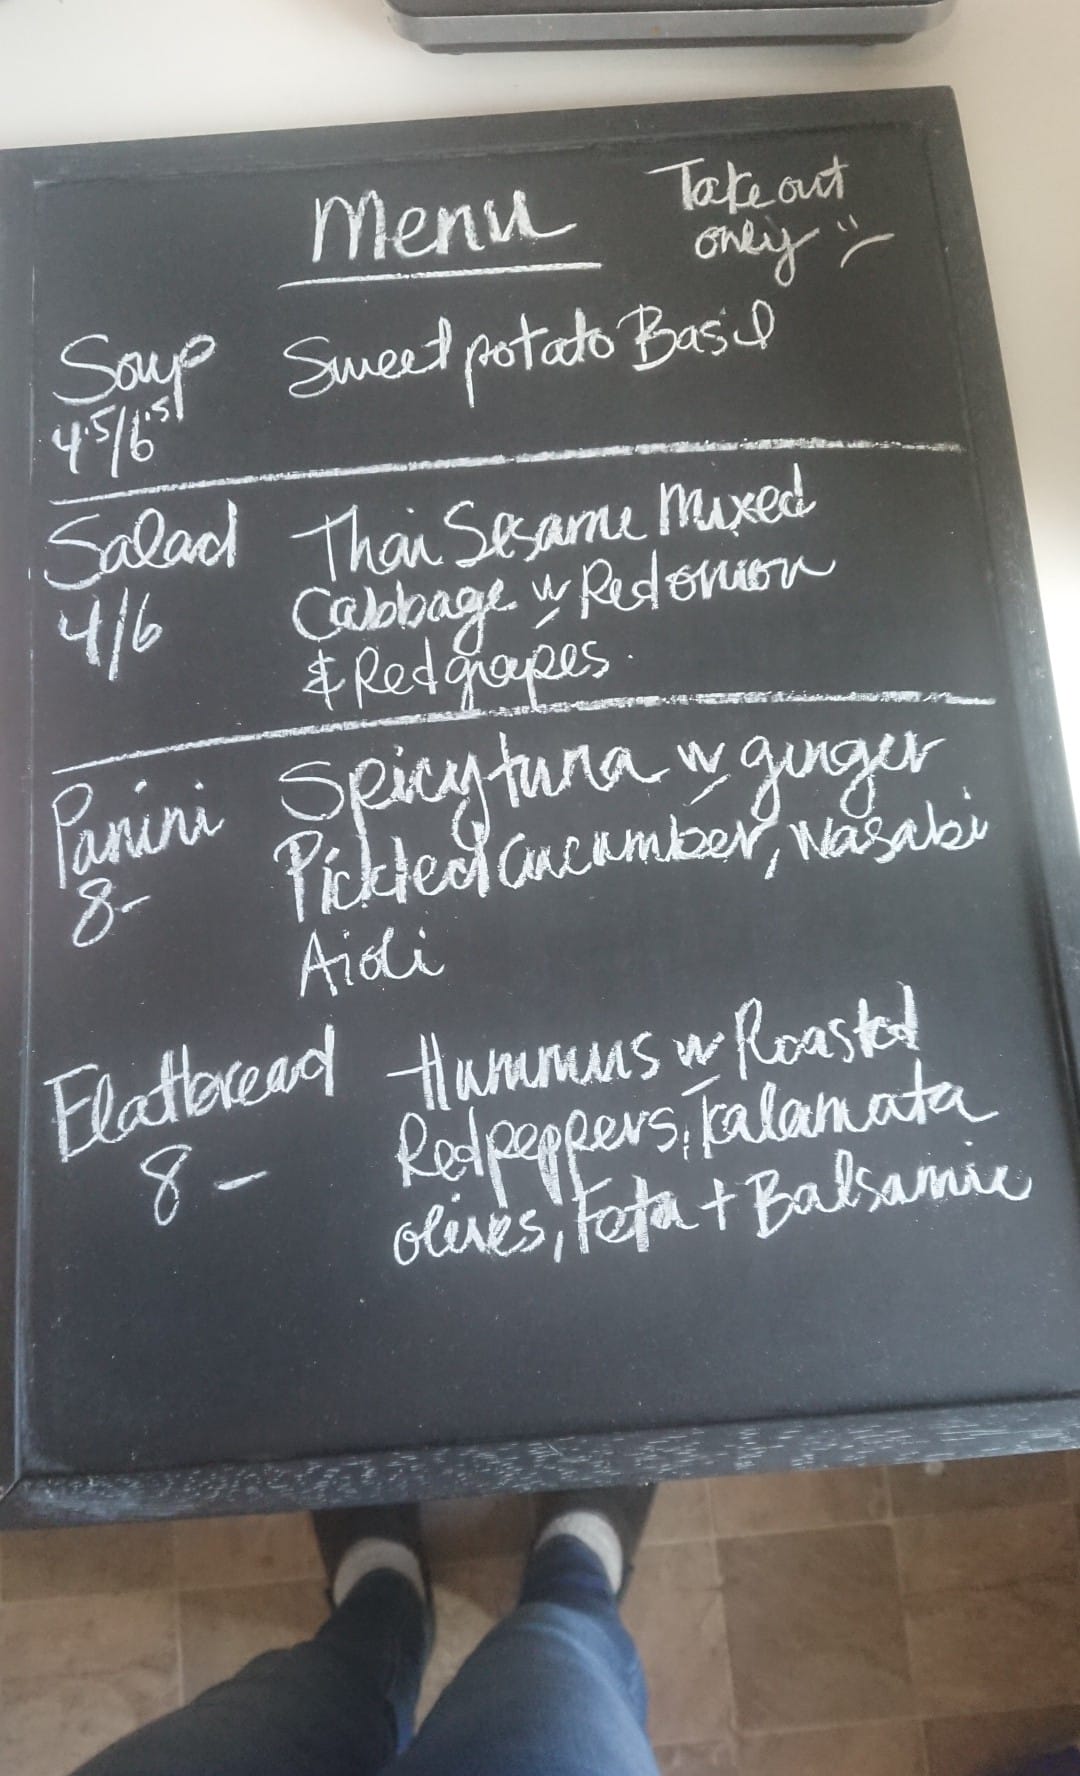 Menu
Take out
only
Soup Sweet potato Basil
4.5/6.5
Salad Thai Sesame Mixed
4/6 Cabbage w Red onion
& Red grapes.
Panini Spicy tuna w ginger
8- Pickled Cucumber, Wasabi
Aioli
Flatbread Hummus w Roasted
8- Red peppers, Kalamata
olives, Feta + Balsamic